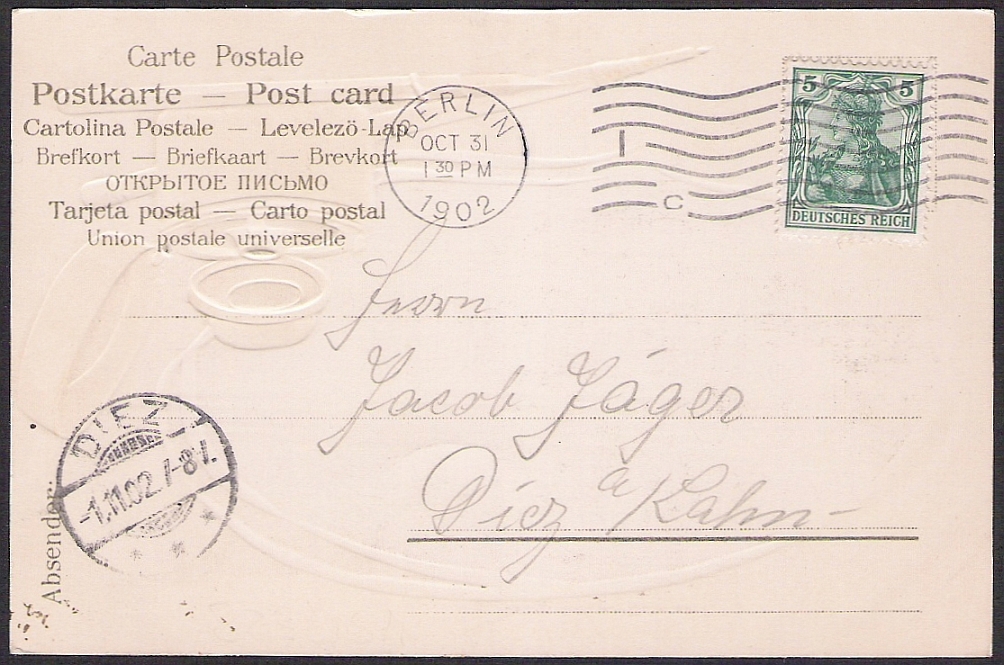 Carte Postale
Postkarte — Post card
Cartolina Postale — Levelező-Lap
Brefkort — Briefkaart — Brevkort
ОТКРЫТОЕ ПИСЬМО
Tarjeta postal — Carto postal
Union postale universelle
BERLIN
OCT 31
1 30 PM
1902
I
C
5 5
DEUTSCHES REICH
Herrn
Jacob Jäger
Diez a Lahn
DIEZ
-1.11.02.7-8V.
Absender: